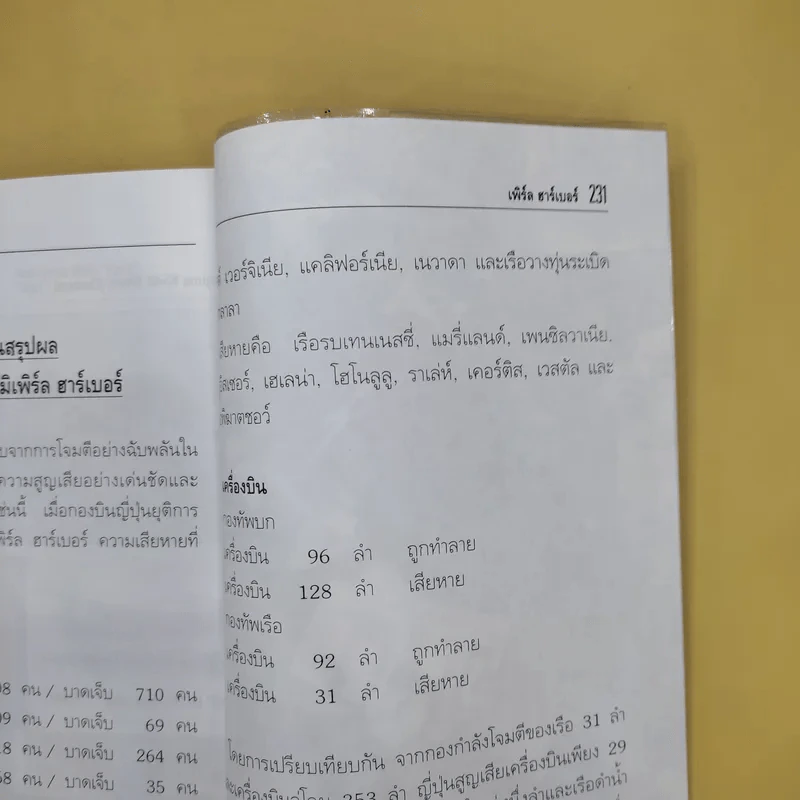 นสรุปผล
มิเพิร์ล ฮาร์เบอร์
บจากการโจมตีอย่างฉับพลันใน
ความสูญเสียอย่างเด่นชัดและ
ช่นนี้ เมื่อกองบินญี่ปุ่นยุติการ
พิร์ล ฮาร์เบอร์ ความเสียหายที่
08 คน / บาดเจ็บ 710 คน
09 คน / บาดเจ็บ 69 คน
18 คน / บาดเจ็บ 264 คน
68 คน / บาดเจ็บ 35 คน
เพิร์ล ฮาร์เบอร์ 231
เวอร์จิเนีย, แคลิฟอร์เนีย, เนวาดา และเรือวางทุ่นระเบิด
ลาลา
เสียหายคือ เรือรบเทนเนสซี่, แมรี่แลนด์, เพนซิลวาเนีย.
เฮเลน่า, โฮโนลูลู, ราเล่ห์, เคอร์ติส, เวสตัล และ
มาตชอว์
เครื่องบิน
กองทัพบก
เครื่องบิน 96 ลำ ถูกทำลาย
เครื่องบิน 128 ลำ เสียหาย
กองทัพเรือ
เครื่องบิน 92 ลำ ถูกทำลาย
เครื่องบิน 31 ลำ เสียหาย
โดยการเปรียบเทียบกัน จากกองกำลังโจมตีของเรือ 31 ลำ
353 ลำ ญี่ปุ่นสูญเสียเครื่องบินเพียง 29
ลำและเรือดำน้ำ